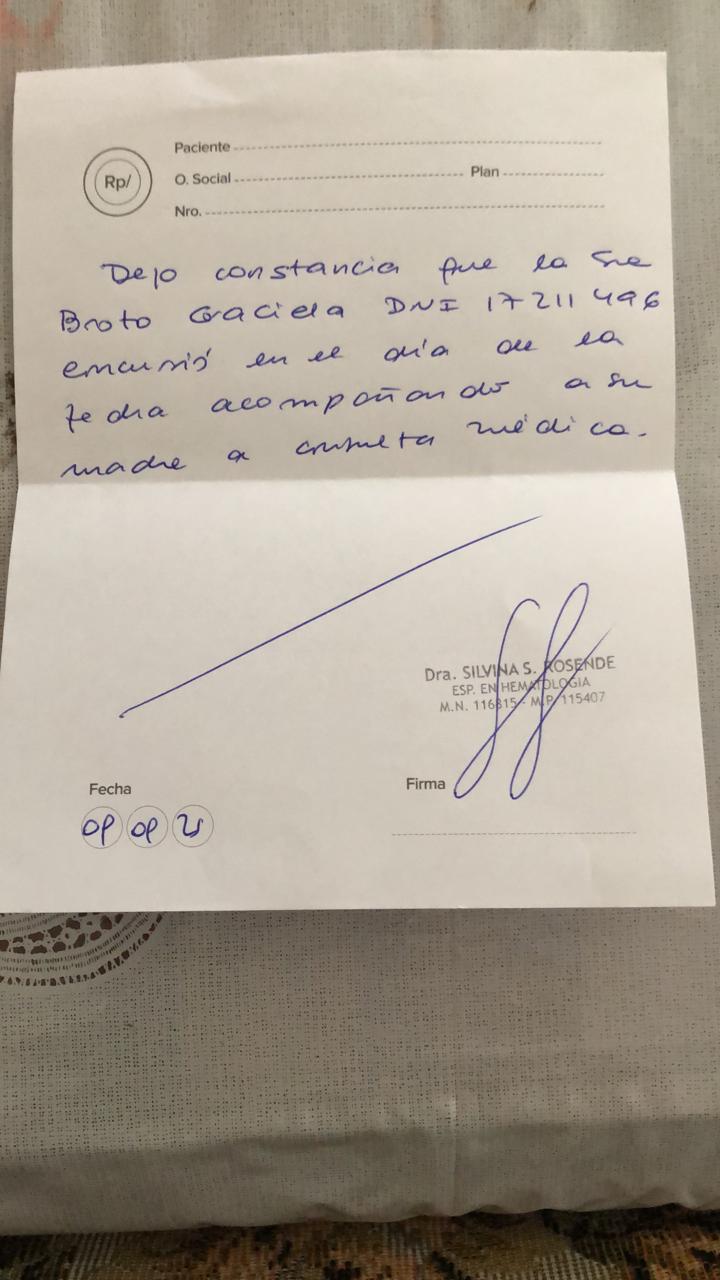 Rp/
Paciente
O. Social Plan
Nro.
Dejo constancia que la Sra
Broto Graciela DNI 17211496
concurrió en el día de la
fecha acompañando a su
madre a consulta médica.
Dra. SILVINA S. ROSENDE
ESP. EN HEMATOLOGIA
M.N. 116815 - M.P. 115407
Fecha
Firma